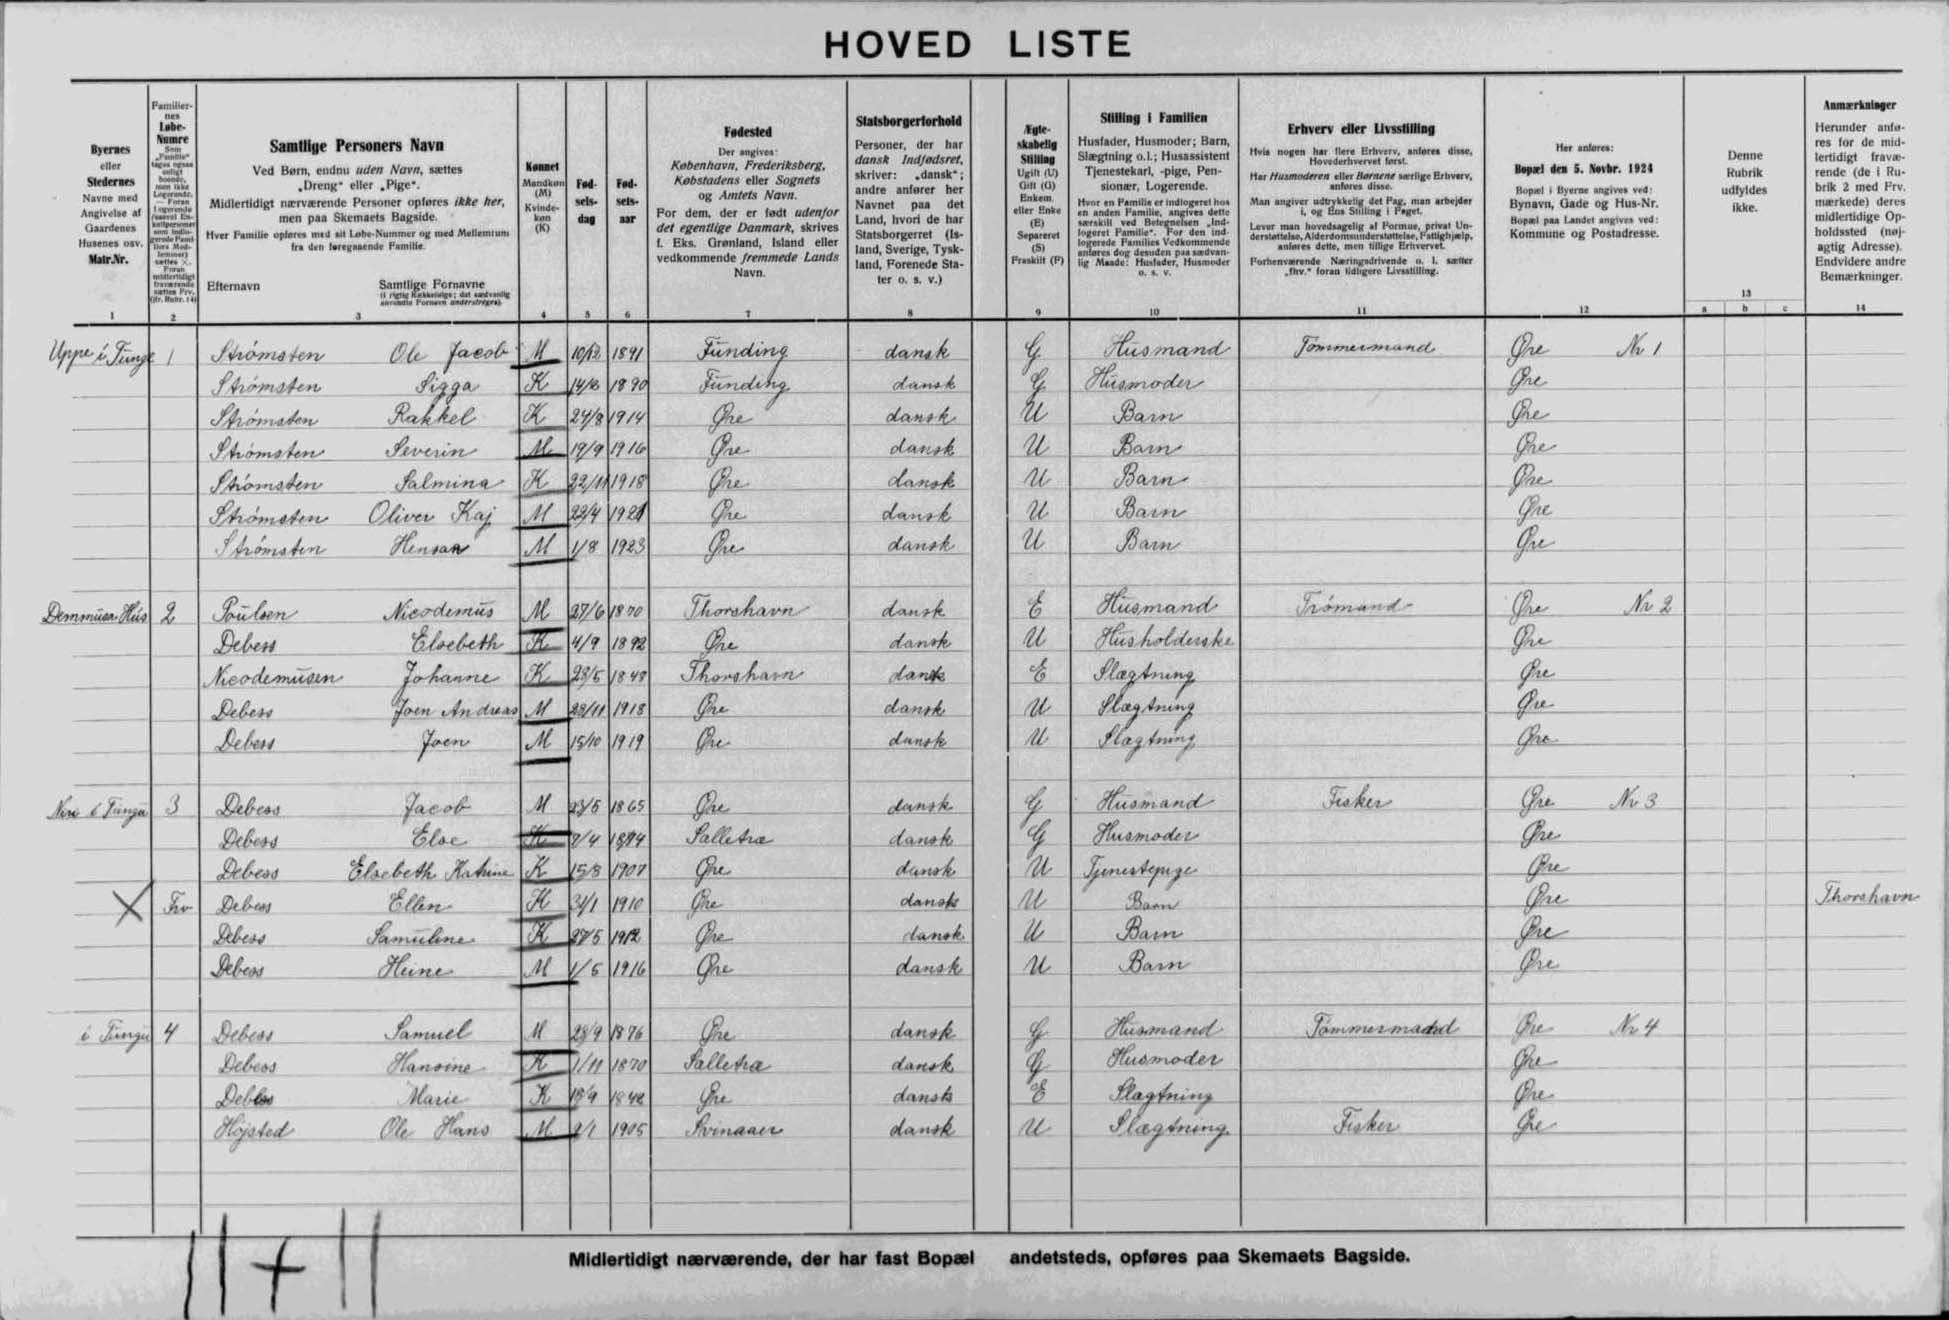 HOVED LISTE
Byernes
eller
Stedernes
Navne med
Angivelse af
Gaardenes
Husenes osv.
Matr.Nr.
1
Familier-
nes
Løbe-
Numre
2
Samtlige Personers Navn
Ved Børn, endnu uden Navn, sættes
„Dreng" eller „Pige".
Midlertidigt nærværende Personer opføres ikke her,
men paa Skemaets Bagside.
Hver Familie opføres med sit Løbe-Nummer og med Mellemrum
fra den foregaaende Familie.
Efternavn Samtlige Fornavne
(i rigtig Rækkefølge; det sædvanlig
anvendte Fornavn understreges).
3
Kønnet
Mandkøn
(M)
Kvinde-
køn
(K)
4
Fød-
sels-
dag
5
Fød-
sels-
aar
6
Fødested
Der angives:
København, Frederiksberg,
Købstadens eller Sognets
og Amtets Navn.
For dem, der er født udenfor
det egentlige Danmark, skrives
f. Eks. Grønland, Island eller
vedkommende fremmede Lands
Navn.
7
Statsborgerforhold
Personer, der har
dansk Indfødsret,
skriver: „dansk";
andre anfører her
Navnet paa det
Land, hvori de har
Statsborgerret (Is-
land, Sverige, Tysk-
land, Forenede Sta-
ter o. s. v.)
8
Ægte-
skabelig
Stilling
Ugift (U)
Gift (G)
Enkem.
eller Enke
(E)
Separeret
(S)
Fraskilt (F)
9
Stilling i Familien
Husfader, Husmoder; Barn,
Slægtning o.l.; Husassistent
Tjenestekarl, -pige, Pen-
sionær, Logerende.
Hvor en Familie er indlogeret hos
en anden Familie, angives dette
særskilt ved Betegnelsen „Ind-
logeret Familie". For den ind-
logerede Families Vedkommende
anføres dog desuden paa sædvan-
lig Maade: Husfader, Husmoder
o. s. v.
10
Erhverv eller Livsstilling
Hvis nogen har flere Erhverv, anføres disse,
Hovederhvervet først.
Har Husmoderen eller Børnene særlige Erhverv,
anføres disse.
Man angiver udtrykkelig det Fag, man arbejder
i, og Ens Stilling i Faget.
Lever man hovedsagelig af Formue, privat Un-
derstøttelse, Alderdomsunderstøttelse, Fattighjælp,
anføres dette, men tillige Erhvervet.
Forhenværende Næringsdrivende o. l. sætter
„fhv." foran tidligere Livsstilling.
11
Her anføres:
Bopæl den 5. Novbr. 1924
Bopæl i Byerne angives ved:
Bynavn, Gade og Hus-Nr.
Bopæl paa Landet angives ved:
Kommune og Postadresse.
12
Denne
Rubrik
udfyldes
ikke.
13
a b c
Anmærkninger
Herunder anfø-
res for de mid-
lertidigt fravæ-
rende (de i Ru-
brik 2 med Frv.
mærkede) deres
midlertidige Op-
holdssted (nøj-
agtig Adresse).
Endvidere andre
Bemærkninger.
14
Uppe i Tunge 1 Strómsten Ole Jacob M 10/12 1891 Funding dansk G Husmand Tömmermand Øre Nr 1
Strómsten Sigga K 1890 Funding dansk G Husmoder Øre
Strómsten Rakkel K 24/8 1914 Øre dansk U Barn Øre
Strómsten Severin M 19/9 1916 Øre dansk U Barn Øre
Strómsten Salmina K 22/11 1918 Øre dansk U Barn Øre
Strómsten Oliver Kaj M 22/4 1921 Øre dansk U Barn Øre
Strómsten M 1/8 1923 Øre dansk U Barn Øre
Hús 2 Poulsen Nicodemus M 27/6 1870 Thorshavn dansk E Husmand Trómand Øre Nr 2
Debess Elsebeth K 4/9 1892 Øre dansk U Husholderske Øre
Nicodemusen Johanne K 28/5 1848 Thorshavn dansk E Slægtning Øre
Debess Joen Andreas M 28/11 1918 Øre dansk U Slægtning Øre
Debess Joen M 15/10 1919 Øre dansk U Slægtning Øre
3 Debess Jacob M 23/5 1865 Øre dansk G Husmand Fisker Øre Nr 3
Debess Else K 7/4 Salletræ dansk G Husmoder Øre
Debess Elsebeth Katrine K 15/8 1907 Øre dansk U Tjenestepige Øre
Frv Debess Ellen K 31/1 1910 Øre dansk U Barn Øre Thorshavn
Debess Samuline K 27/5 1912 Øre dansk U Barn Øre
Debess Heine M 1/5 1916 Øre dansk U Barn Øre
i Tungu 4 Debess Samuel M 28/9 1876 Øre dansk G Husmand Tömmermand Øre Nr 4
Debess Hansine K 1/11 1870 Salletræ dansk G Husmoder Øre
Debess Marie K 1842 Øre dansk E Slægtning Øre
Højsted Ole Hans M 2/1 1905 Svinaaer dansk U Slægtning Fisker Øre
11 + 11
Midlertidigt nærværende, der har fast Bopæl andetsteds, opføres paa Skemaets Bagside.